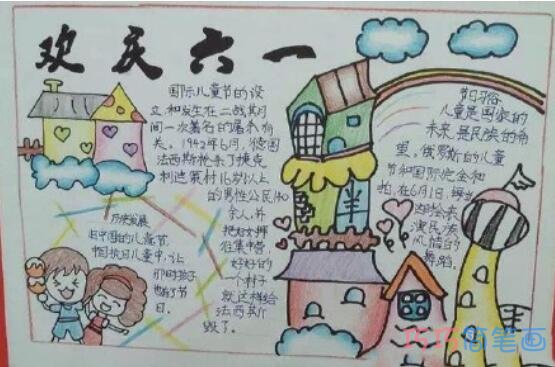 欢庆六一
国际儿童节的设
立,和发生在二战期
间一次著名的屠杀有
关。1942年6月,德国
法西斯枪杀了捷克
利迪策村16岁以上
的男性公民140
余人,并
把妇女押
往集中营。
好好的
一个村子
就这样给
法西斯
毁了。
历史发展
旧中国的儿童节,
儿童中,让
孩子
也有了节
日。
节日习俗
儿童是国家的
未来,是民族的希
望。俄罗斯的儿童
节和国际
在6月1日,
演民族
风情的
舞蹈。
巧巧简笔画